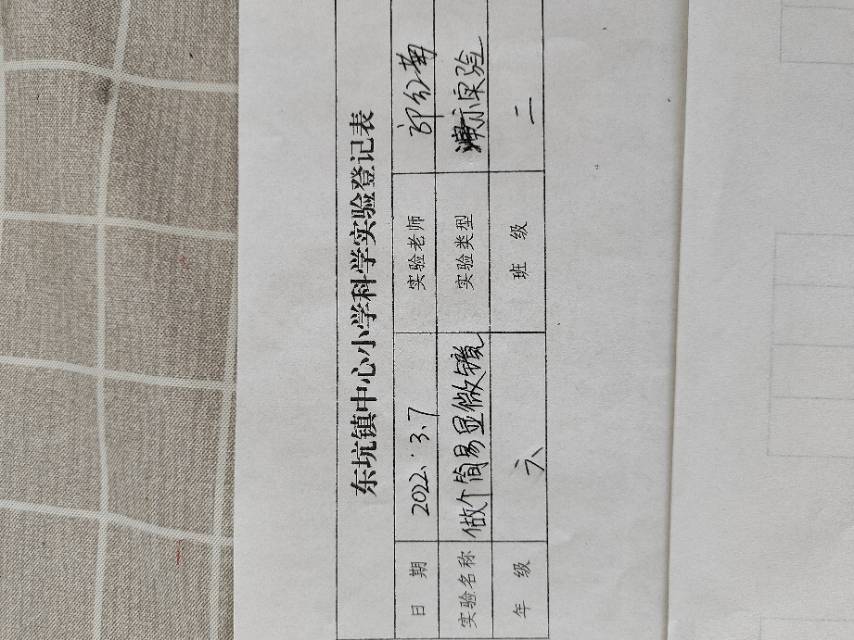 东坑镇中心小学科学实验登记表
日 期 2022.3.7 实验老师
实验名称 做个简易显微镜 实验类型 演示实验
年 级 六 班 级 二